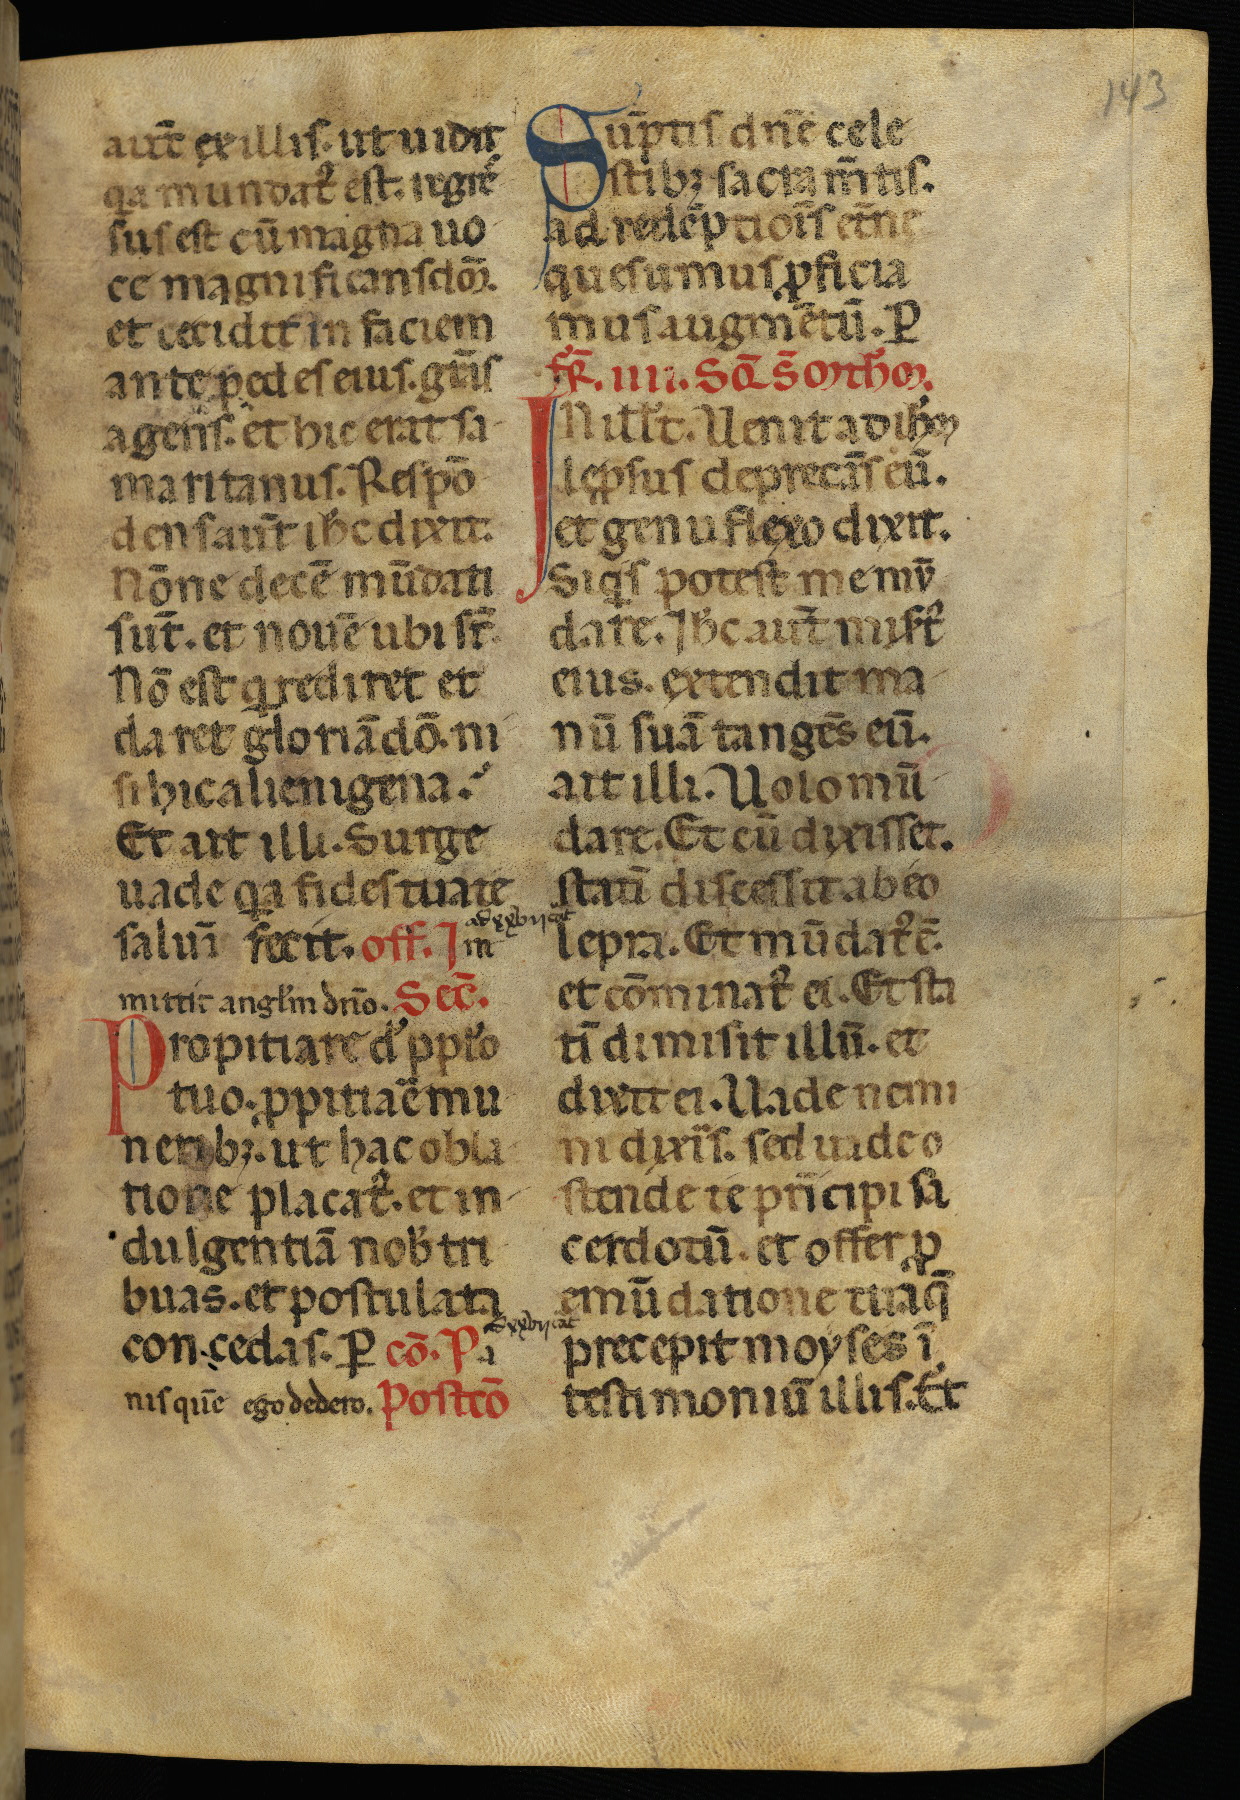 143
aut̄ ex illis. ut uidit
qa mundat᷑ est. regres
sus est cū magna uo
ce magnificans dōm.
et cecidit in faciem
ante pedes eius. gr̄as
agens. et hic erat sa
maritanus. Respō
dens aut̄ ihc dixit.
Nōne decē mūdati
sūt. et nouē ubi st̄.
Nō est q rediret et
daret gloriā dō. ni
si hic alienigena.
Et ait illi. Surge
uade qa fides tua te
saluū fecit. off. Im
ad xxbij cat̄
mittit angl'm dn̄o. Sec̄.
Propitiare dn̄ pp̄lo
tuo. ꝓpitiare mu
neribꝫ. ut hac obla
tione placat᷑. et in
dulgentiā nob̄ tri
buas. et postulata
concedas. P cō. Pa
ad xxbij cat̄
nis quē ego dedero. Postcō
Suptis dn̄e cele
stibꝫ sacram̄tis.
ad redēptiois et̄ne
quesumus ꝓficia
mus augmētū. P
fr̄. iiii. Sc̄d S Mth̄m.
In ill't. Uenit ad ih̄m
lepsus deprecās eū.
et genu flexo dixit.
Si q̄s potest me mū
dare. Ihc aut̄ misert᷑
eius. extendit ma
nū suā tangēs eū.
ait illi. Uolo mū
dare. Et cū dixisset.
statī discessit ab eo
lepra. Et mūdat᷑ ē.
et cōminat᷑ ei. Et sta
tī dimisit illū. et
dixit ei. Uade nemi
ni dixis. sed uade o
stende te pr̄icipi sa
cerdotū. et offer ꝓ
emūdatione tua q̄
precepit moyses ī
testimoniū illis. Et